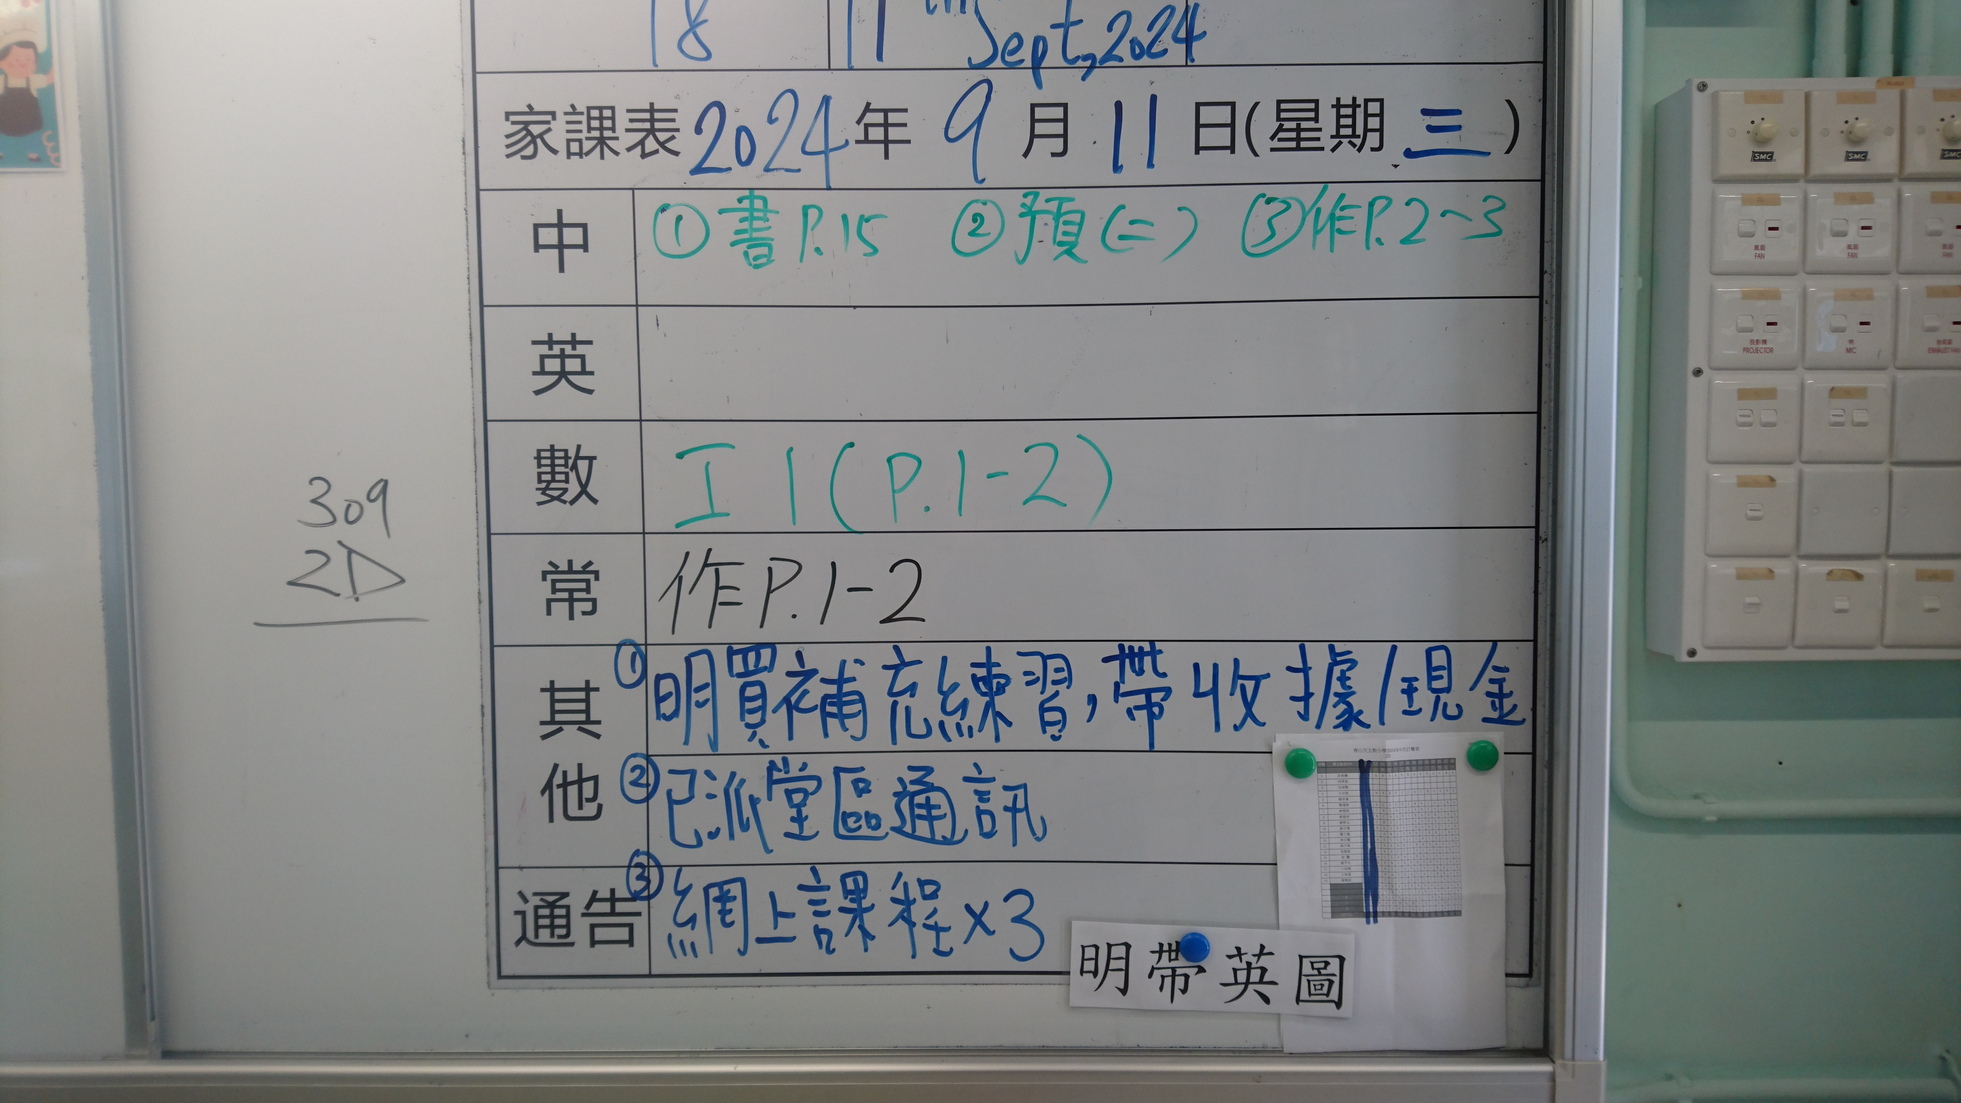 18 11th Sept, 2024
家課表 2024 年 9 月 11 日(星期 三 )
中 ①書P.15 ②預(二) ③作P.2~3
英
數 工1(P.1-2)
常 作P.1-2
其他 ①明買補充練習,帶收據/現金
②已派堂區通訊
通告 ③網上課程×3
明帶英圖
309
2D
SMC SMC SMC
風扇 風扇
FAN FAN FAN
投影機
PROJECTOR MIC